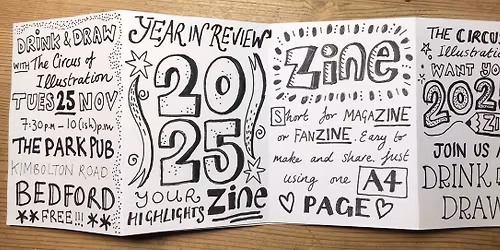 DRINK & DRAW
WITH The Circus of
Illustration
TUES 25 NOV
7:30pm - 10(ish)pm
THE PARK PUB
KIMBOLTON ROAD
BEDFORD
FREE!!!
YEAR IN REVIEW
20
25
YOUR
HIGHLIGHTS
Zine
Zine
Short for MAGAZINE
or FANZINE. Easy to
make and share. Just
using one A4
PAGE
THE CIRCUS
Illustratio
WANT YO
202
ZI
JOIN US A
DRINK
DRAW